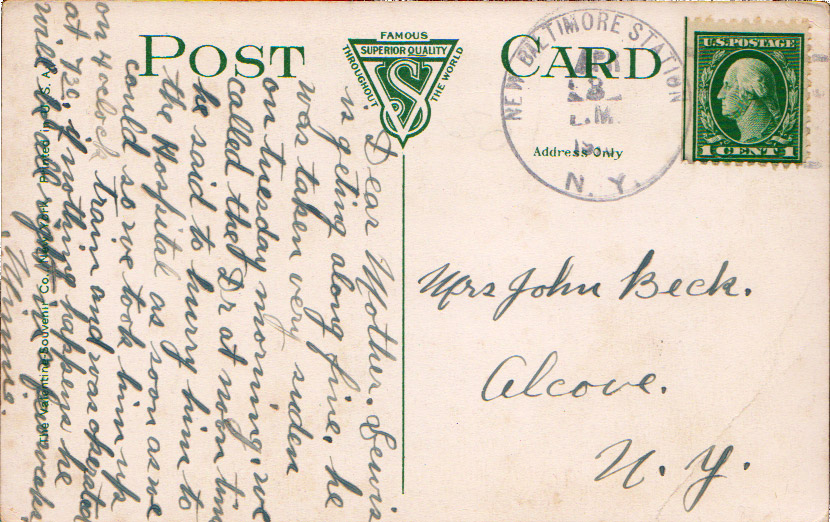 POST CARD
FAMOUS
THROUGHOUT THE WORLD
SUPERIOR QUALITY
VS
NEW BALTIMORE STATION
8
N. Y.
U.S. POSTAGE
1 CENT 1
Address Only
Mrs John Beck.
Alcove.
N. Y.
Dear Mother. Lewis
is geting along fine, he
was taken very suden
on tuesday morning, we
called the Dr at noon time
he said to hurry him to
the Hospital as soon as we
could so we took him up
on 4 oclock train and was operated
at 730, if nothing happens he
will be all right in a few weeks
Minnie.
The Valentine-Souvenir Co., New York. Printed in U. S. A.